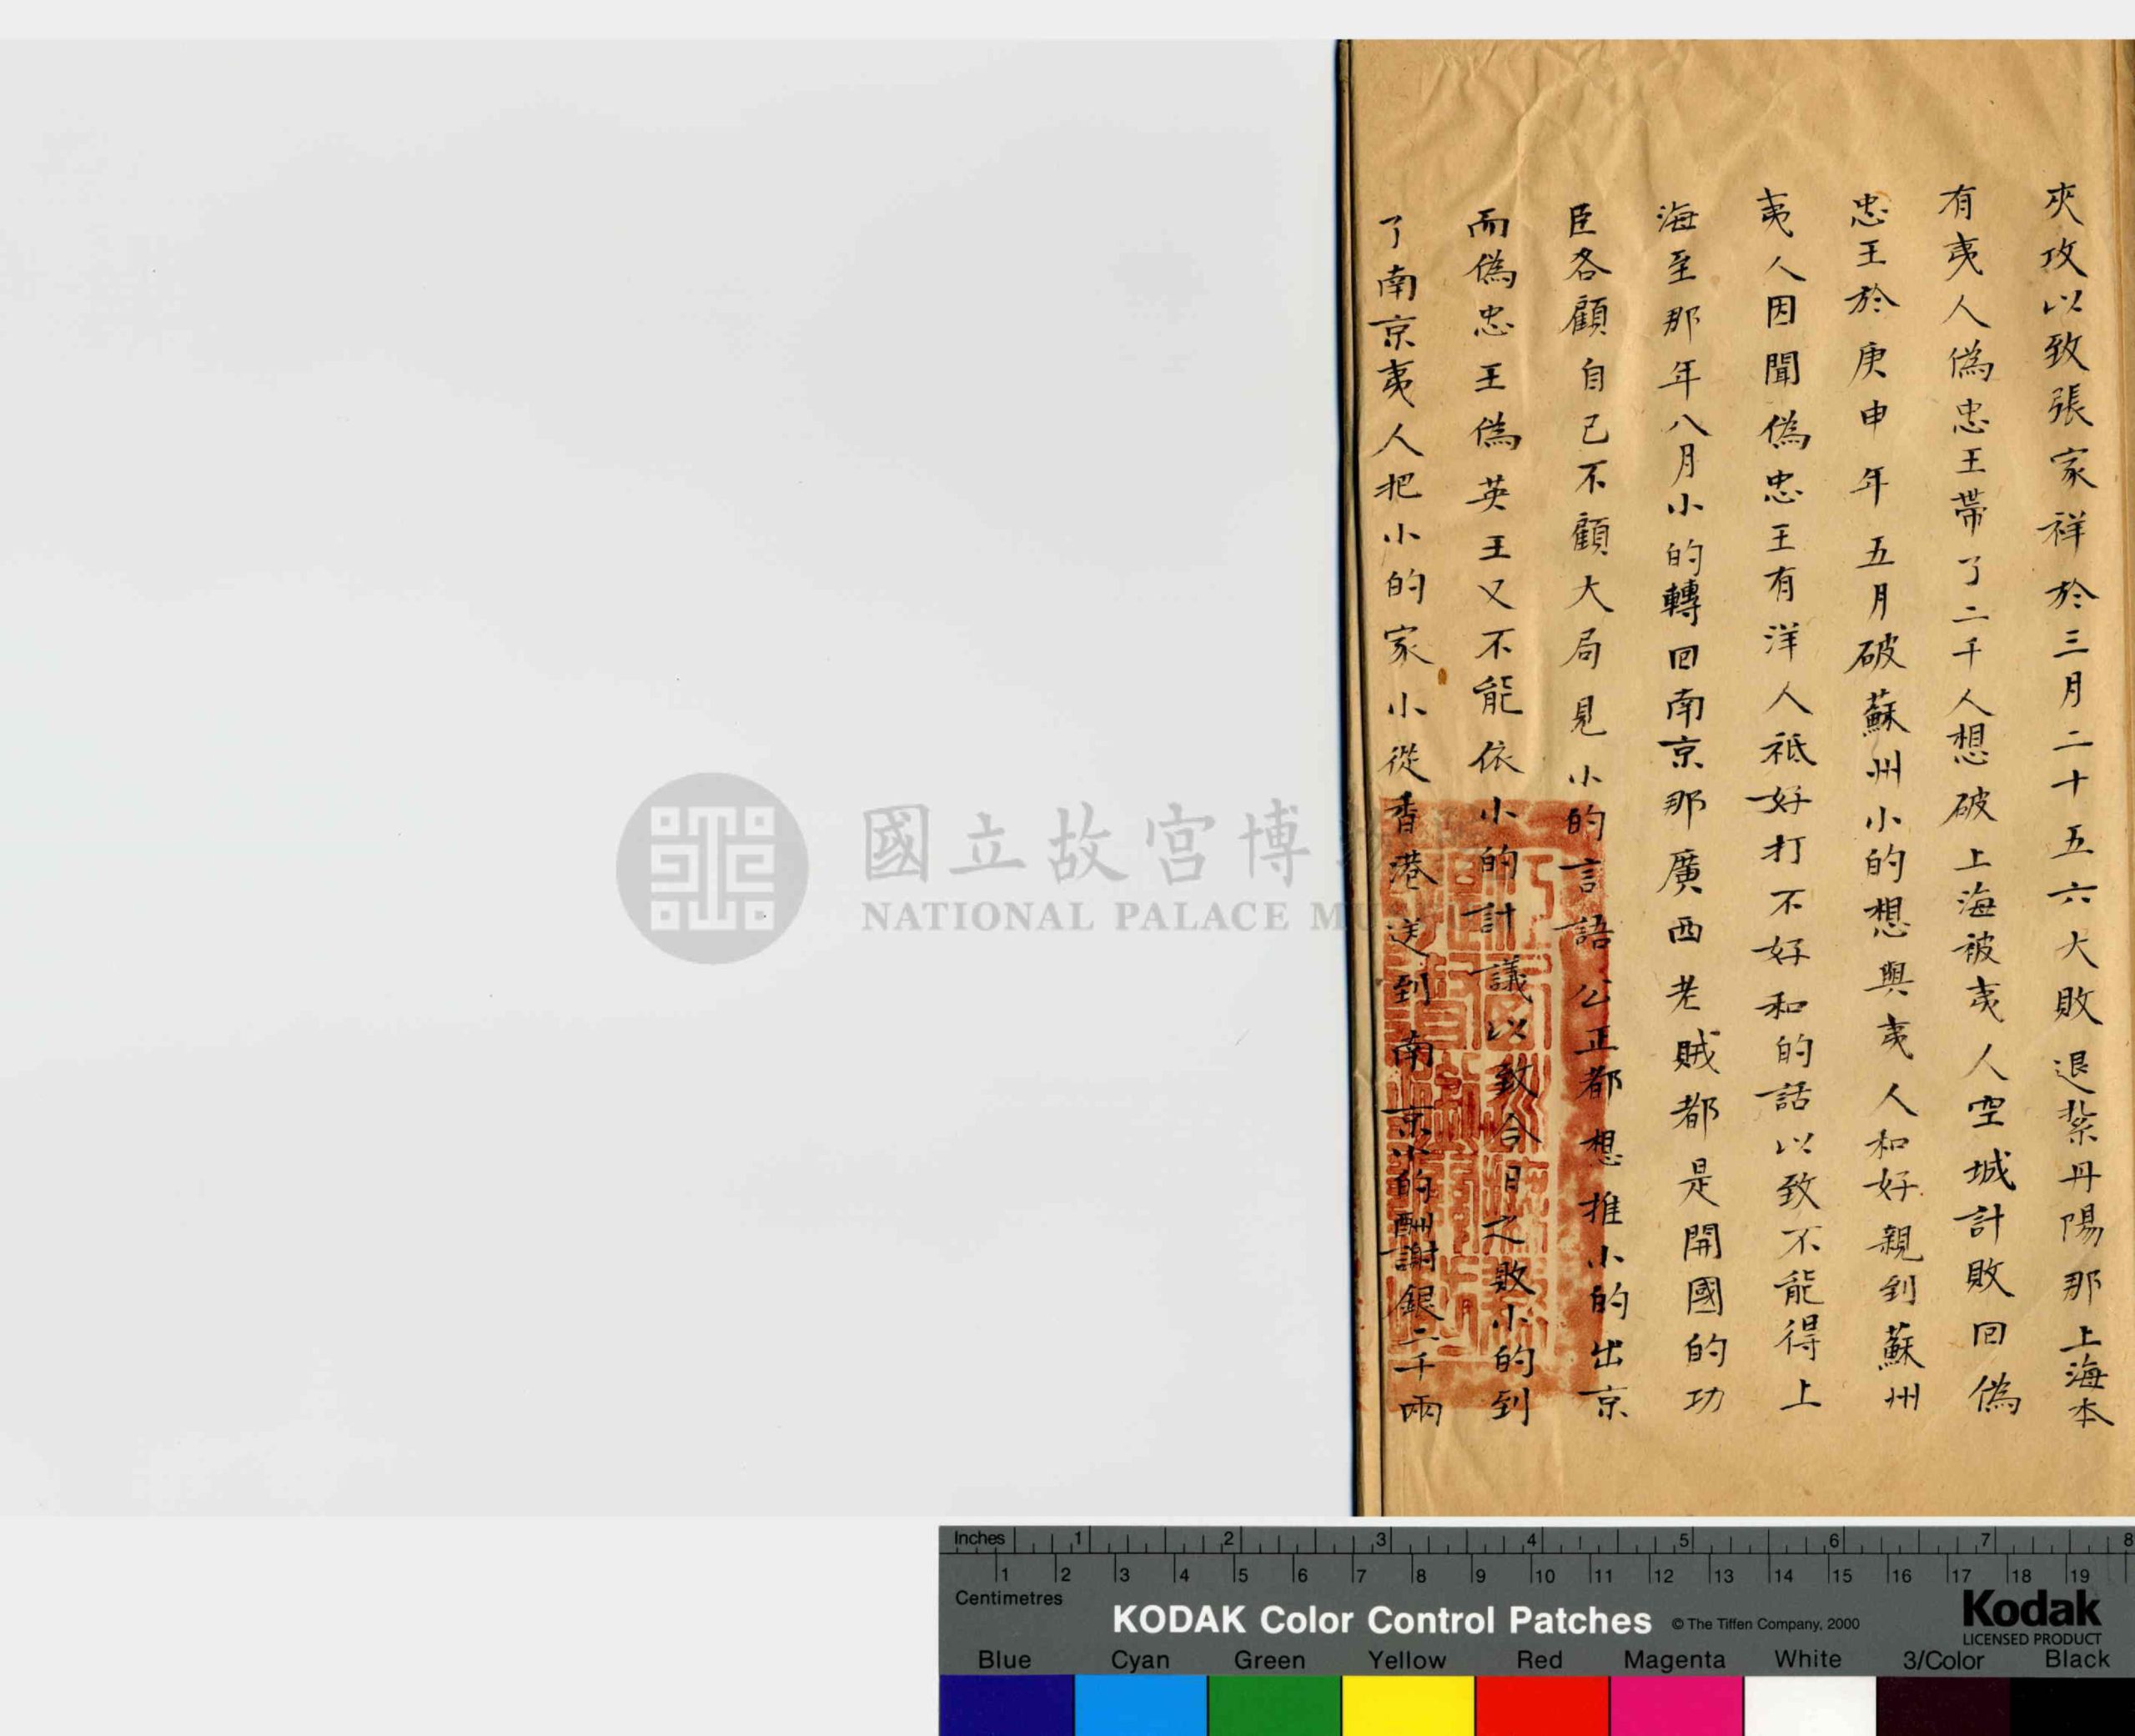 夾攻以致張家祥於三月二十五六大敗退紮丹陽那上海本
有夷人偽忠王帶了二千人想破上海被夷人空城計敗回偽
忠王於庚申年五月破蘇州小的想與夷人和好親到蘇州
夷人因聞偽忠王有洋人祗好打不好和的話以致不能得上
海至那年八月小的轉回南京那廣西老賊都是開國的功
臣各顧自己不顧大局見小的言語公正都想推小的出京
而偽忠王偽英王又不能依小的計議以致今日之敗小的到
了南京夷人把小的家小從香港送到南京小的酬謝銀二千兩
國立故宮博
NATIONAL PALACE MU
Inches 1 2 3 4 5 6 7 8
1 2 3 4 5 6 7 8 9 10 11 12 13 14 15 16 17 18 19
Centimetres
KODAK Color Control Patches © The Tiffen Company, 2000
Kodak
LICENSED PRODUCT
Blue Cyan Green Yellow Red Magenta White 3/Color Black